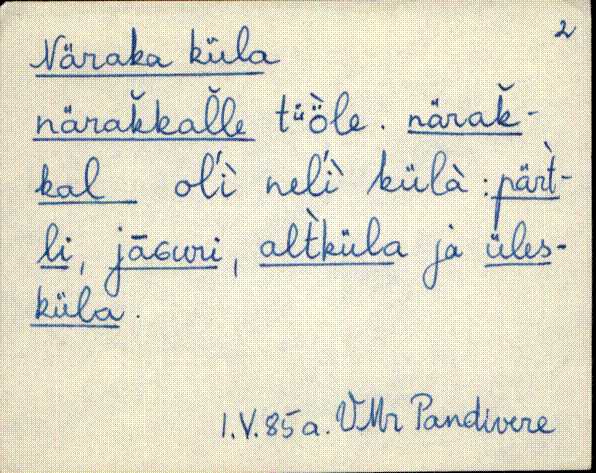 2
Näraka küla
närak̆kal̆le tüö̀le. närak̆-
kal oĺì neĺì külà : pärt̀-
li, jāɢuri, alt̀küla jà üles-
küla.
1.V.85a. VMr Pandivere